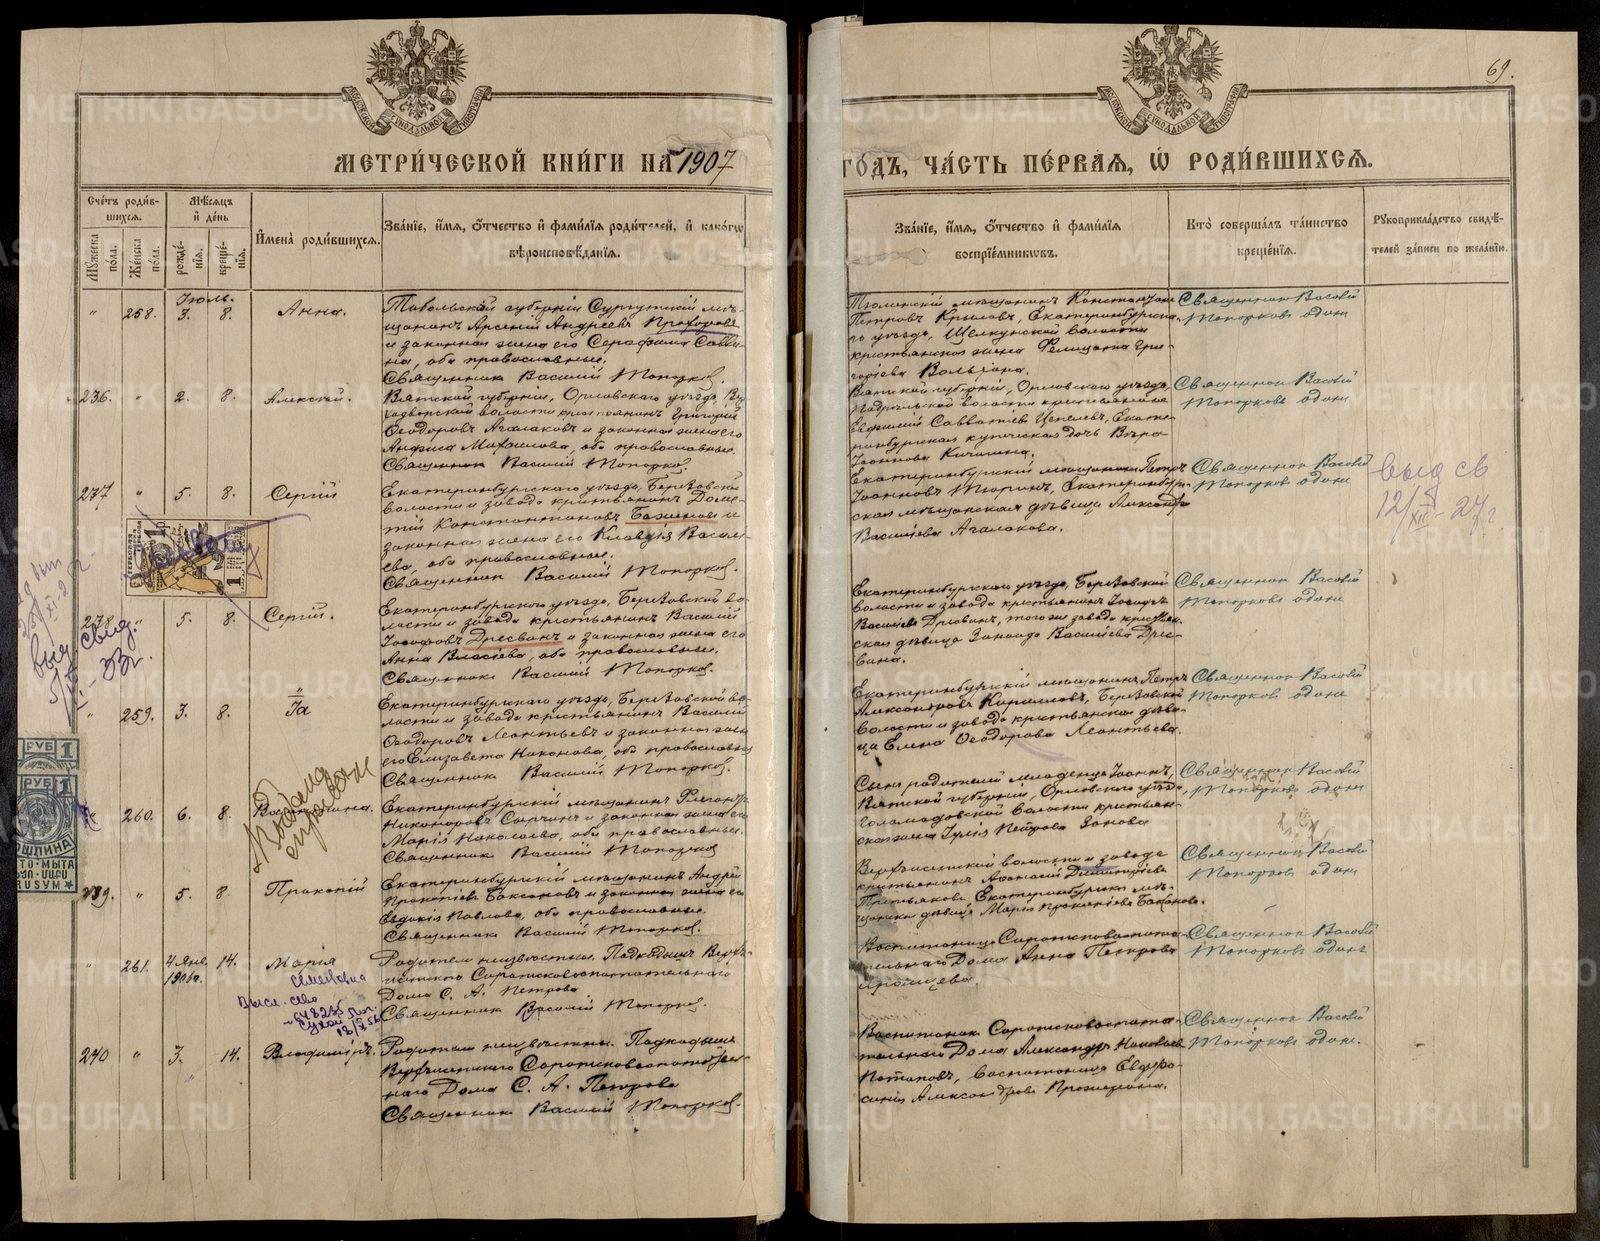 69.
МЕТРИЧЕСКОЙ КНИГИ НА 1907
ГОДЪ, ЧАСТЬ ПЕРВАЯ, Ѡ РОДИВШИХСЯ.
Счетъ родив-
шихся.
Мужеска пола.
Женска пола.
Мѣсяцъ
и день
рожде-
нія.
креще-
нія.
Имена родившихся.
Званіе, имя, отчество и фамилія родителей, и какогѡ
вѣроисповѣданія.
Званіе, имя, отчество и фамилія
воспріемникѡвъ.
Кто совершалъ таинство
крещенія.
Рукоприкладство свидѣ-
телей записи по желанію.
Іюль.
" 258. 3. 8. Анна.
Тобольской губерніи Сургутскій мѣ-
щанинъ Арсеній Андреевъ Прохоровъ
и законная жена его Серафима Савви-
на, оба православные.
Священникъ Василій Топорковъ.
Тюменскій мѣщанинъ Константинъ
Петровъ Крыловъ, Екатеринбургска-
го уѣзда, Щелкунской волости
крестьянская жена Фелицата Гри-
горіева
Священникъ Василій
Топорковъ одинъ
236. " 2. 8. Алексѣй.
Вятской губерніи, Орловскаго уѣзда
волости крестьянинъ Григорій
Ѳеодоровъ Агалаковъ и законная жена его
Анфиса Михаилова, оба православные.
Священникъ Василій Топорковъ.
Вятской губерніи, Орловскаго уѣзда,
волости крестьянинъ
Евфимій Савватіевъ Цепелевъ, Екате-
ринбургская купеческая дочь Вѣра
Іоаннова Кичигина.
Священникъ Василій
Топорковъ одинъ
237 " 5. 8. Сергій
Екатеринбургскаго уѣзда, Березовской
волости и завода крестьянинъ Доме-
тій Константиновъ Баженовъ и
законная жена его Клавдія Василі-
ева, оба православные.
Священникъ Василій Топорковъ.
Екатеринбургскій мѣщанинъ Петръ
Іоанновъ Тюринъ, Екатеринбург-
ская мѣщанская дѣвица Александра
Василіева Агалакова.
Священникъ Василій
Топорковъ одинъ
выд св
12/XII-27 г.
238 " 5. 8. Сергій.
Екатеринбургскаго уѣзда, Березовской во-
лости и завода крестьянинъ Василій
Іосифовъ Дресвинъ и законная жена его
Анна Власіева, оба православные.
Священникъ Василій Топорковъ.
Екатеринбургскаго уѣзда, Березовской
волости и завода крестьянинъ Іосифъ
Василіевъ Дресвинъ, того же завода крестьян-
ская дѣвица Зинаида Василіева Дрес-
вина.
Священникъ Василій
Топорковъ одинъ
выд. свид.
33 г.
" 259. 3. 8. Іа
Екатеринбургскаго уѣзда, Березовской во-
лости и завода крестьянинъ Василій
Ѳеодоровъ Леонтьевъ и законная жена
его Елизавета Никонова, оба православные
Священникъ Василій Топорковъ.
Екатеринбургскій мѣщанинъ Петръ
Александровъ Корниловъ, Березовской
волости и завода крестьянская дѣви-
ца Елена Ѳеодорова Леонтьева.
Священникъ Василій
Топорковъ одинъ
РУБ 1
РУБ 1
260. 6. 8.
Екатеринбургскій мѣщанинъ
Никаноровъ Сырчинъ и законная жена его
Марія Николаева, оба православные.
Священникъ Василій Топорковъ
Сынъ родителей младенца Іоаннъ,
Вятской губерніи, Орловскаго уѣзда,
волости крестьян-
ская жена Іулія Петрова Зонова
Священникъ Василій
Топорковъ одинъ
239. " 5. 8. Прокопій
Екатеринбургскій мѣщанинъ Андрей
Прокопіевъ Баксановъ и законная жена его
Евдокія Павлова, оба православные.
Священникъ Василій Топорковъ.
Верхъисетской волости и завода
крестьянинъ Аѳанасій Димитріевъ
Третьяковъ, Екатеринбургская мѣ-
щанская дѣвица Марія Прокопіева Баксанова.
Священникъ Василій
Топорковъ одинъ
" 261. 4 янв. 1906 г. 14. Марія
Родители неизвѣстны. Подкидышъ Верхъ-
исетскаго Сиропковоспитательнаго
Дома С. А. Петрова
Священникъ Василій Топорковъ.
Воспитанница Сиропковоспита-
тельнаго Дома Анна Петрова
Священникъ Василій
Топорковъ одинъ
240 " 3. 14. Владиміръ.
Родители неизвѣстны. Подкидышъ
Верхъисетскаго Сиропковоспитатель-
наго Дома С. А. Петрова
Священникъ Василій Топорковъ.
Воспитанникъ Сиропковоспита-
тельнаго Дома Александръ Николаевъ
Потаповъ, воспитанница Евфро-
синія Александрова Прохорова.
Священникъ Василій
Топорковъ одинъ.
METRIKI.GASO-URAL.RU